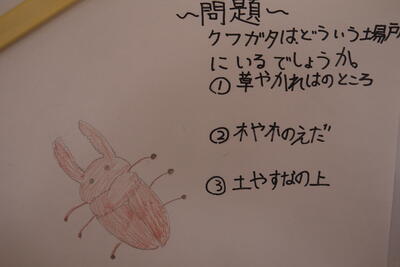 ～問題～
クワガタは、どういう場所
にいるでしょうか。
①草やかれはのところ
②木や木のえだ
③土やすなの上